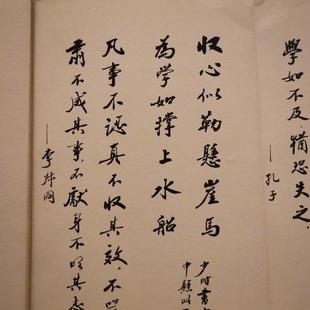 學如不及，猶恐失之，
——孔子
收心似勒懸崖馬
為学如撑上水船
少时書
中懸此
凡事不認真不收其效，不
肅不成其事，不獻身不其志
——李